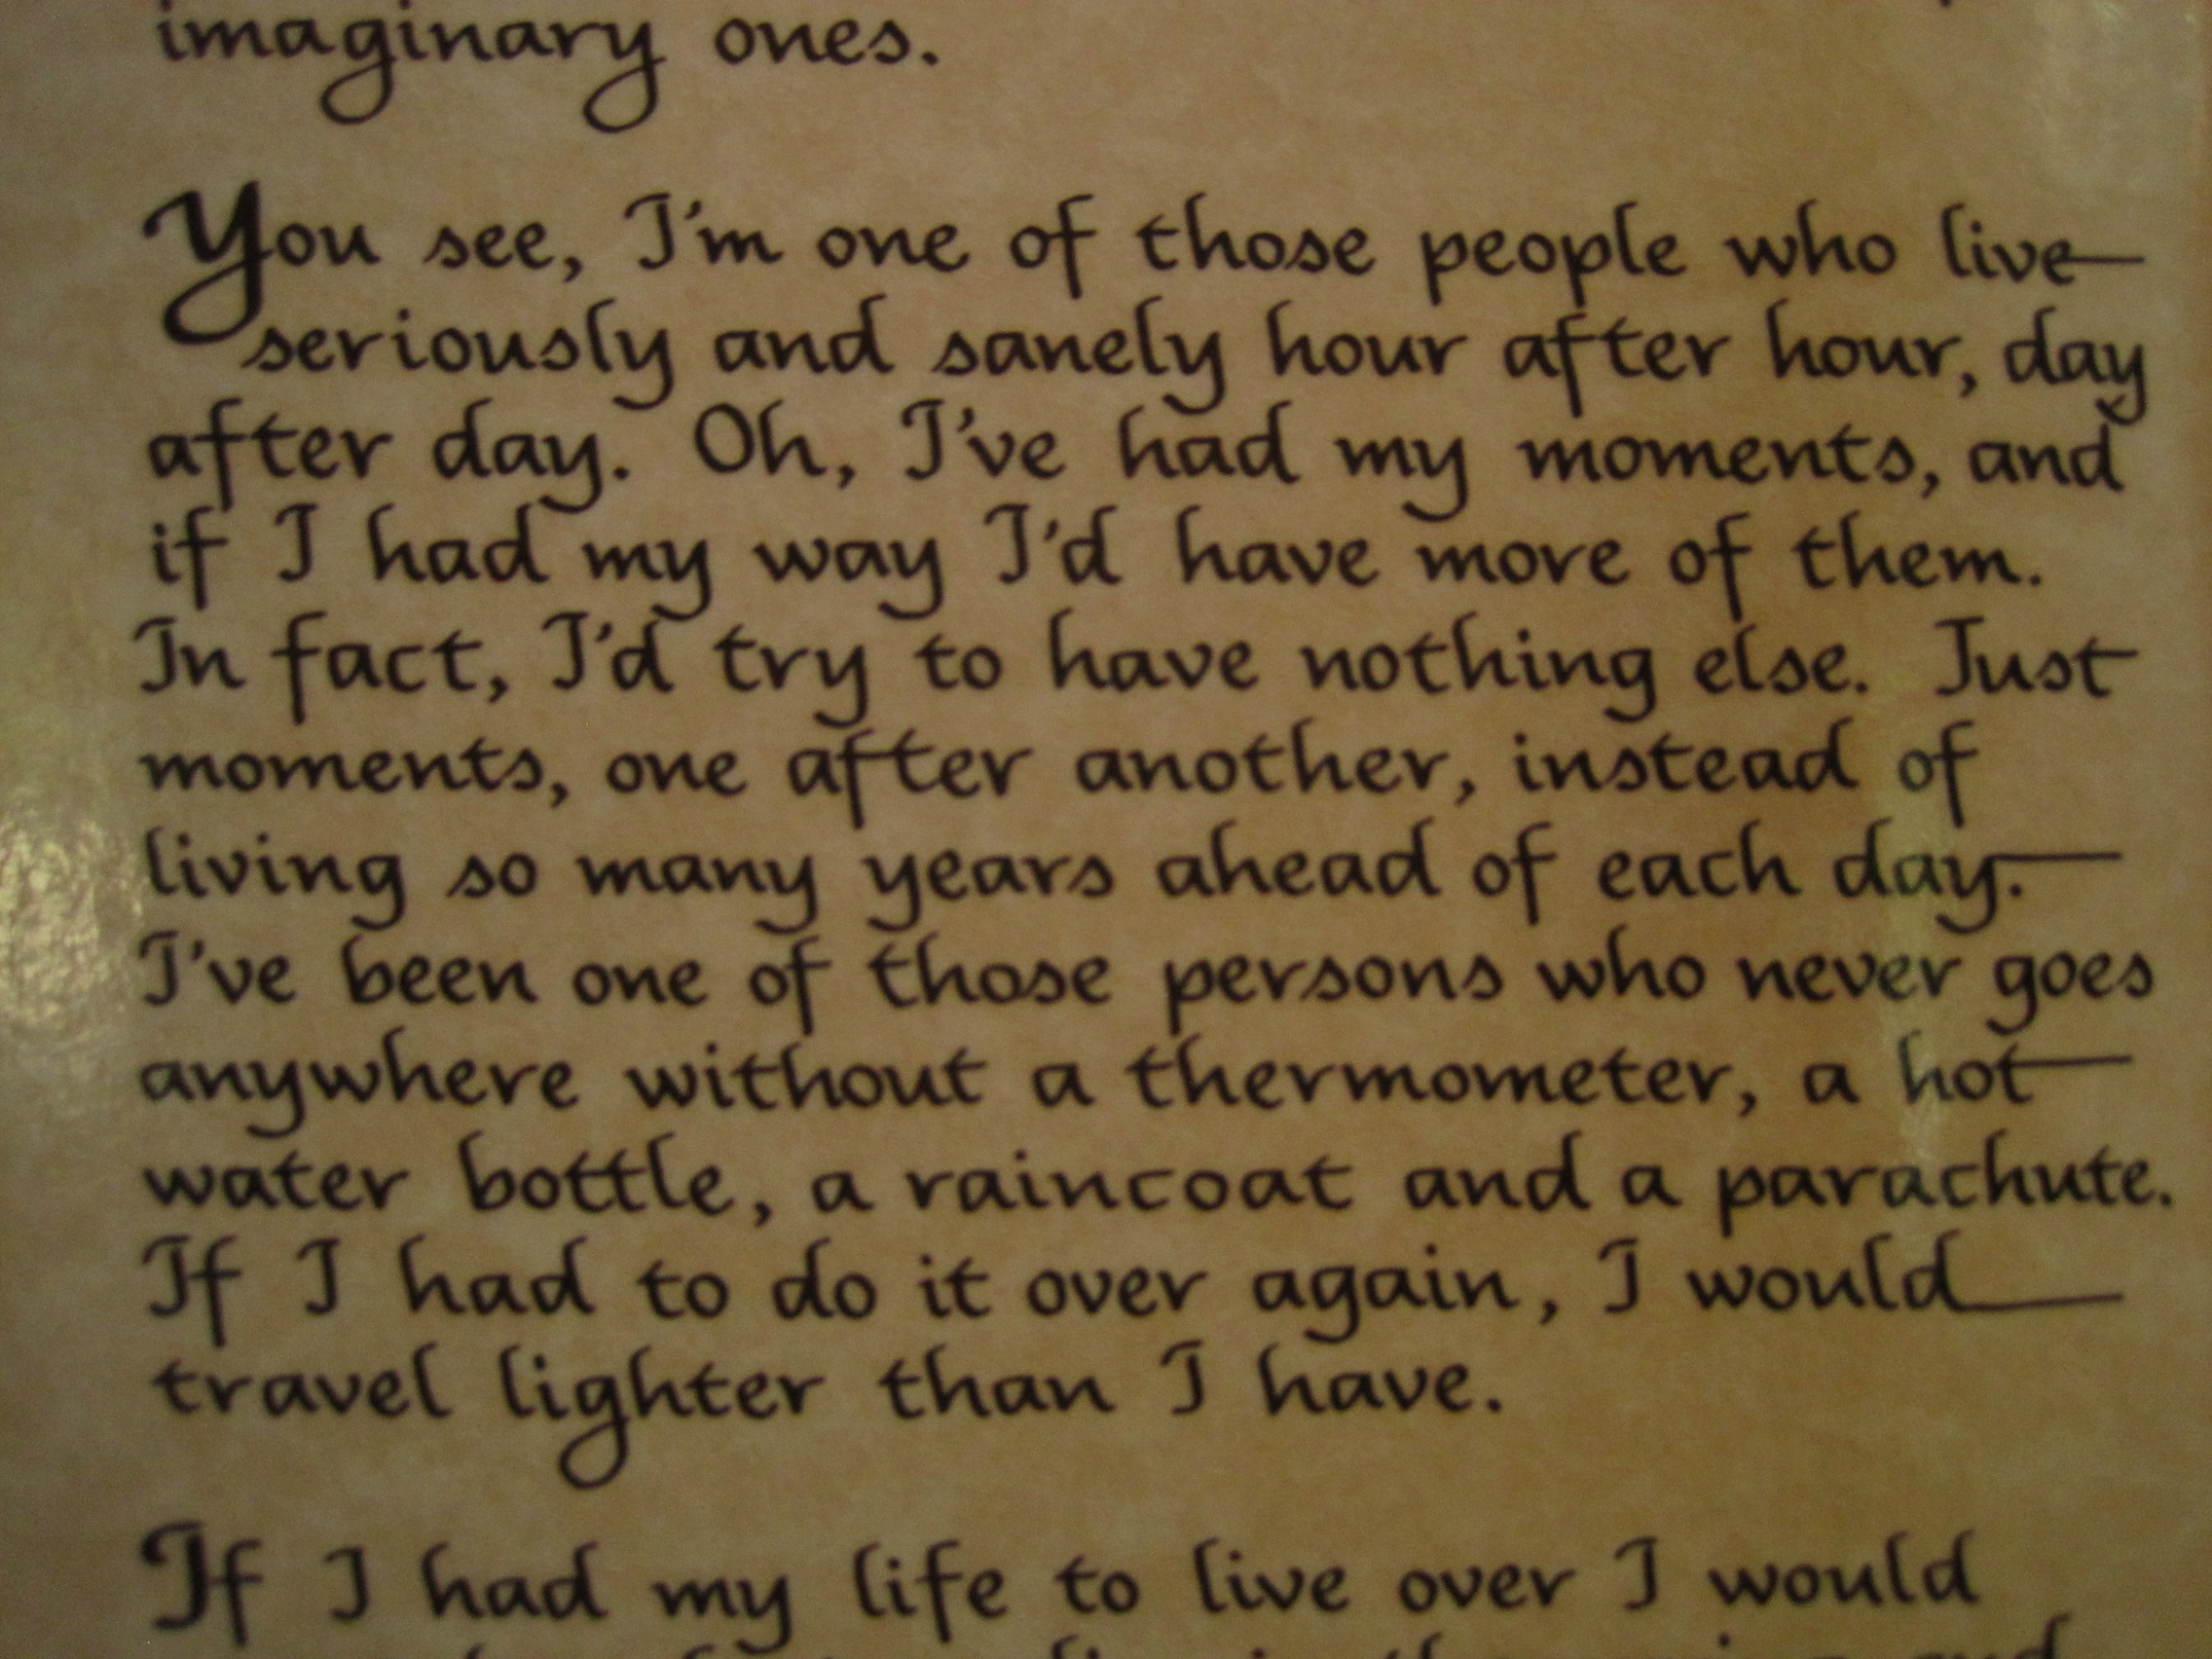 imaginary ones.
You see, I'm one of those people who live
seriously and sanely hour after hour, day
after day. Oh, I've had my moments, and
if I had my way I'd have more of them.
In fact, I'd try to have nothing else. Just
moments, one after another, instead of
living so many years ahead of each day.
I've been one of those persons who never goes
anywhere without a thermometer, a hot
water bottle, a raincoat and a parachute.
If I had to do it over again, I would
travel lighter than I have.
If I had my life to live over I would